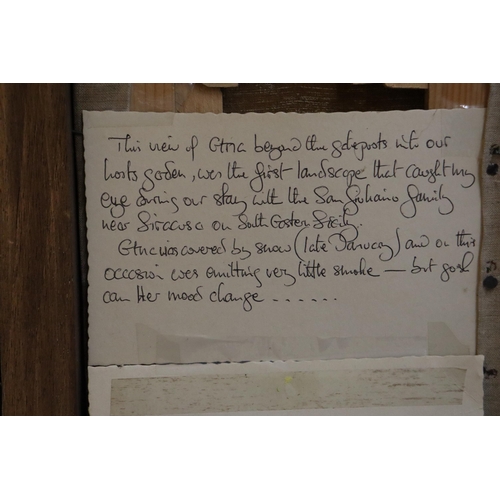 This view of Etna beyond the gateposts into our
hosts garden, was the first landscape that caught my
eye during our stay with the San Giuliano family
near Siracusa on South Eastern Sicily.
Etna was covered by snow (late January) and on this
occasion was emitting very little smoke — but gosh
can Her mood change ......